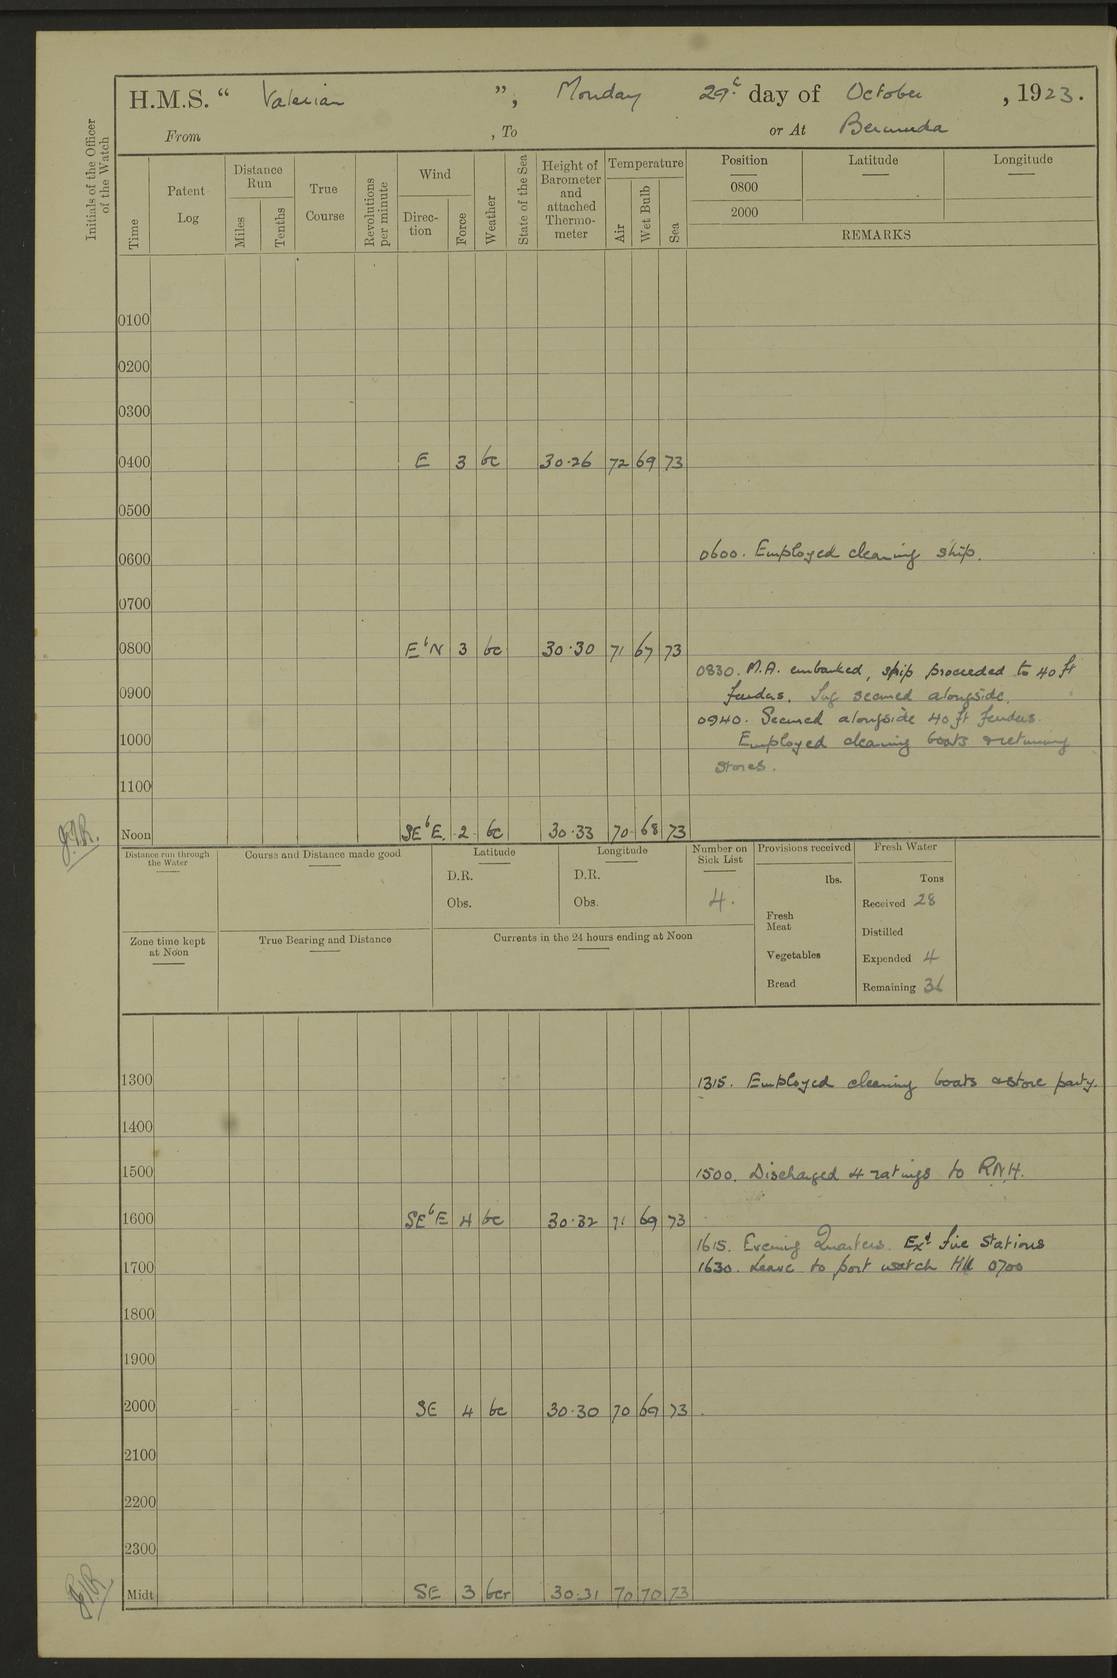 H.M.S. “ Valerian ”, Monday 29th day of October , 1923.
From , To or At Bermuda
Initials of the Officer of the Watch
Time
Patent Log
Distance Run
Miles
Tenths
True Course
Revolutions per minute
Wind
Direc-tion
Force
Weather
State of the Sea
Height of Barometer and attached Thermo-meter
Temperature
Air
Wet Bulb
Sea
Position
Latitude
Longitude
0800
2000
REMARKS
0100
0200
0300
0400 E 3 bc 30.26 72 69 73
0500
0600 0600. Employed cleaning ship.
0700
0800 E b N 3 bc 30.30 71 67 73
0830. M.A. embarked, ship proceeded to 40 ft
0900 fenders. Tug secured alongside.
0940. Secured alongside 40 ft fenders.
1000 Employed cleaning boats & returning
stores.
1100
Noon SE b E. 2 bc 30.33 70 68 73
Distance run through the Water
Course and Distance made good
Latitude
D.R.
Obs.
Longitude
D.R.
Obs.
Number on Sick List
4.
Provisions received
lbs.
Fresh Meat
Vegetables
Bread
Fresh Water
Tons
Received 28
Distilled
Expended 4
Remaining 36
Zone time kept at Noon
True Bearing and Distance
Currents in the 24 hours ending at Noon
1300 1315. Employed cleaning boats & store party.
1400
1500 1500. Discharged 4 ratings to R.N.H.
1600 SE b E 4 bc 30.32 71 69 73
1615. Evening Quarters. Exd fire stations
1700 1630. Leave to port watch till 0700
1800
1900
2000 SE 4 bc 30.30 70 69 73
2100
2200
2300
Midt SE 3 bcr 30.31 70 70 73